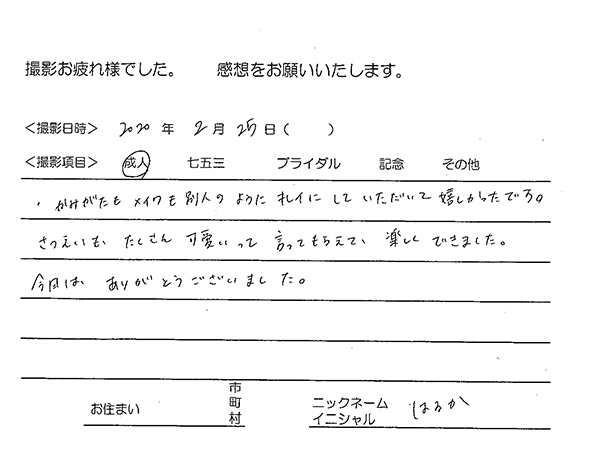 撮影お疲れ様でした。 感想をお願いいたします。
<撮影日時> 2020 年 2 月 25 日 ( )
<撮影項目> 成人 七五三 ブライダル 記念 その他
・かみがたも メイクも 別人の ように キレイに して いただいて 嬉しかったです。
さつえいも たくさん 可愛いって 言ってもらえて、 楽しく できました。
今日は ありがとうございました。
お住まい 市町村 ニックネーム イニシャル はるか